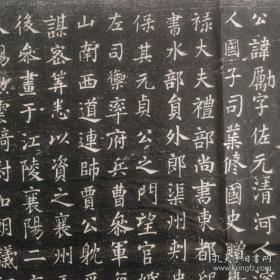 公諱勵字佐元清河人
人國子司業修國史贈
祿大夫禮部尚書東都
書水部員外郎渠州刺史
保其元貞公之門望官婚
左司禦率府兵曹參軍
山南西道連帥賈公耽
謀密筭悉以資之襄州
後參畫于江陵襄陽二